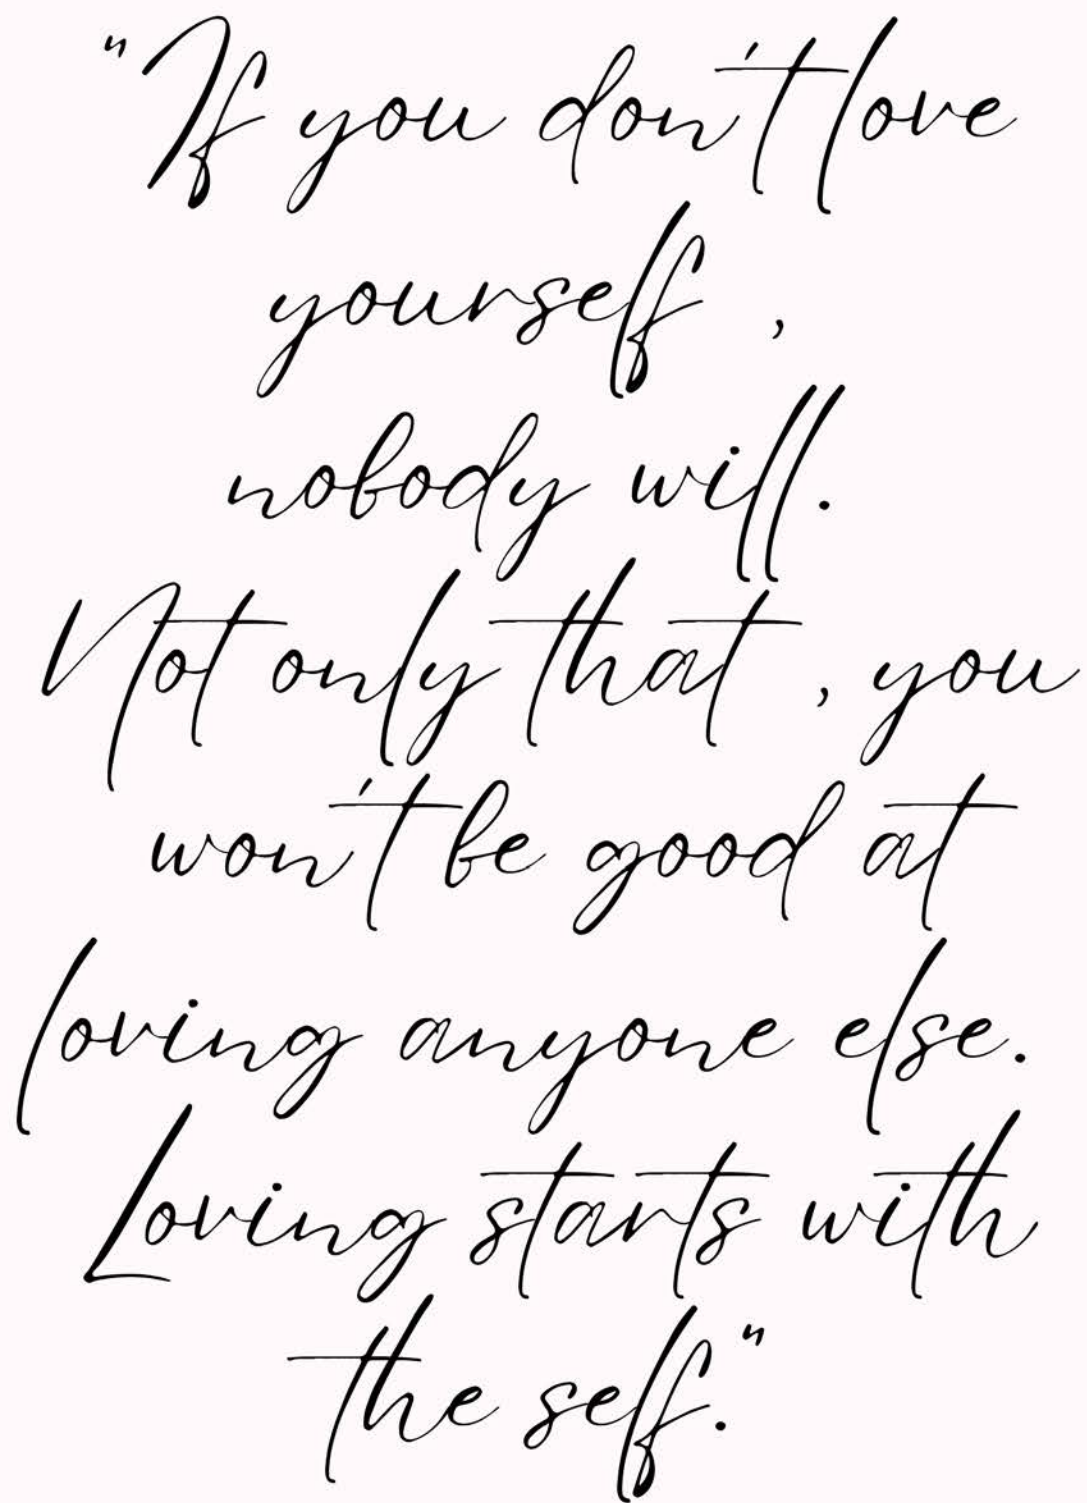 "If you don't love
yourself ,
nobody will.
Not only that , you
won't be good at
loving anyone else.
Loving starts with
the self."